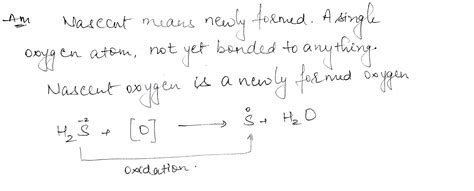 Ans Nascent means newly formed. A single
oxygen atom, not yet bonded to anything.
Nascent oxygen is a newly formed oxygen
H₂S⁻² + [O] ⟶ S⁰ + H₂O
oxidation.